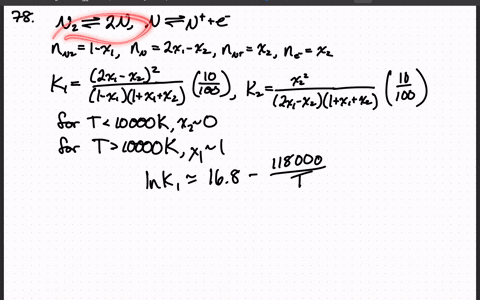 78. N₂ ⇌ 2N, N ⇌ N⁺ + e⁻
n_N₂ = 1-x₁, n_N = 2x₁-x₂, n_N⁺ = x₂, n_e⁻ = x₂
K₁ = (2x₁-x₂)²/((1-x₁)(1+x₁+x₂)) (10/100), K₂ = x₂²/((2x₁-x₂)(1+x₁+x₂)) (10/100)
for T < 10000K, x₂~0
for T > 10000K, x₁~1
ln K₁ ≈ 16.8 - 118000/T